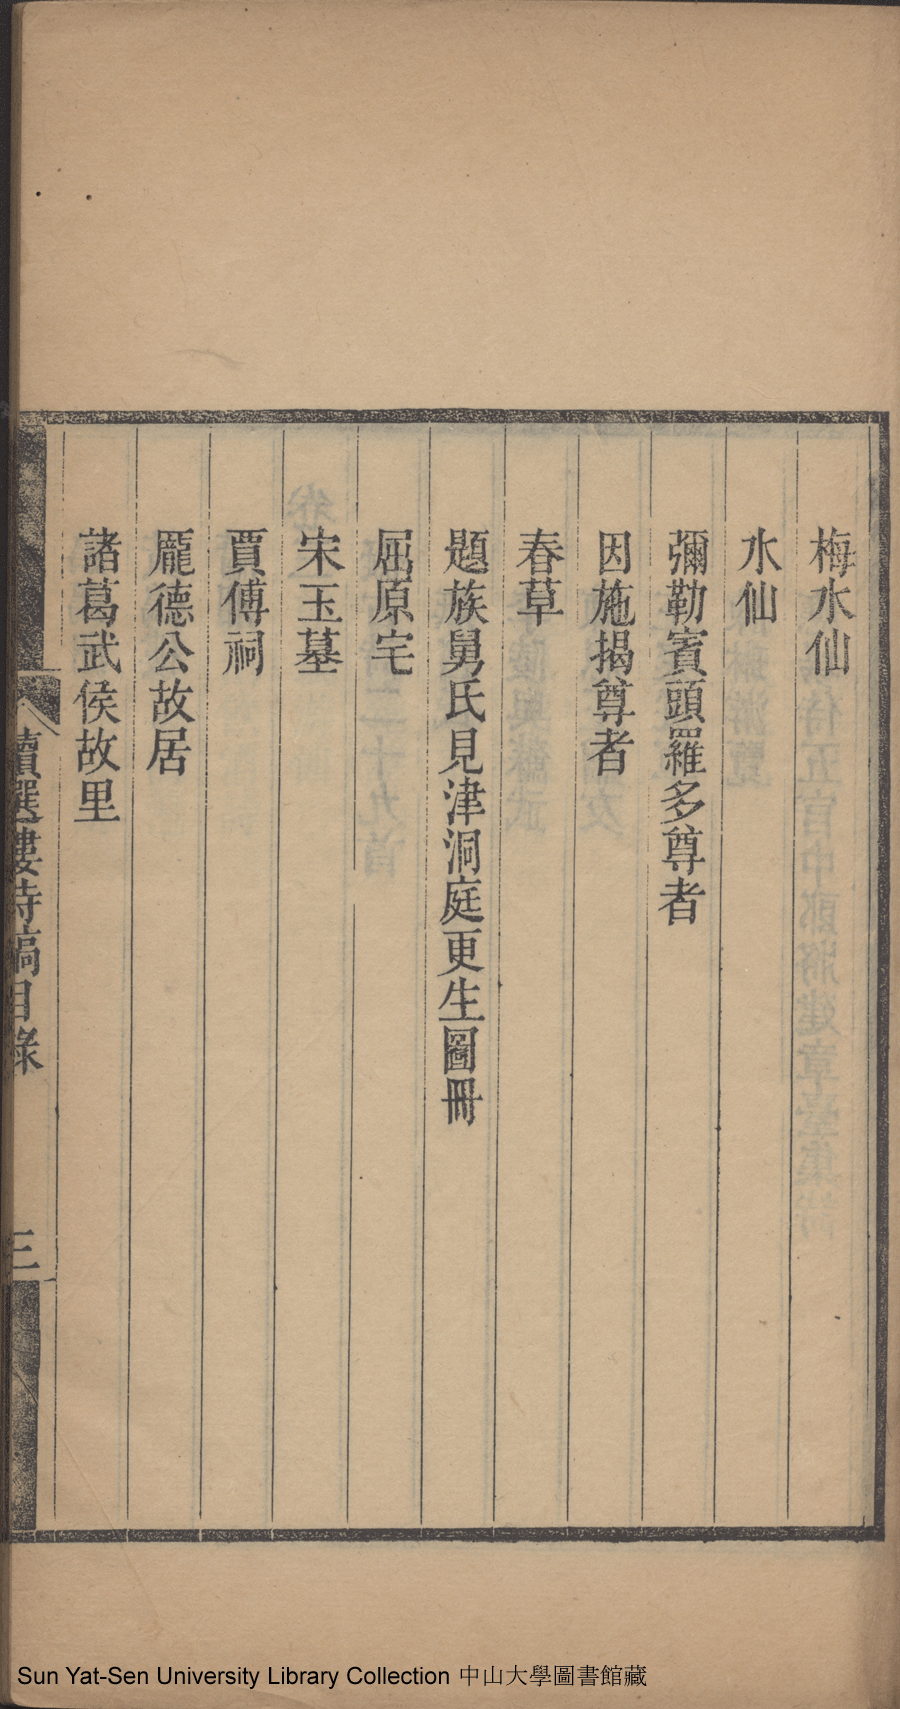 梅水仙
水仙
彌勒賓頭羅多尊者
因施揭尊者
春草
題族舅氏見津洞庭更生圖冊
屈原宅
宋玉墓
賈傅祠
龐德公故居
諸葛武侯故里
讀選樓詩稿目錄
三
Sun Yat-Sen University Library Collection 中山大學圖書館藏